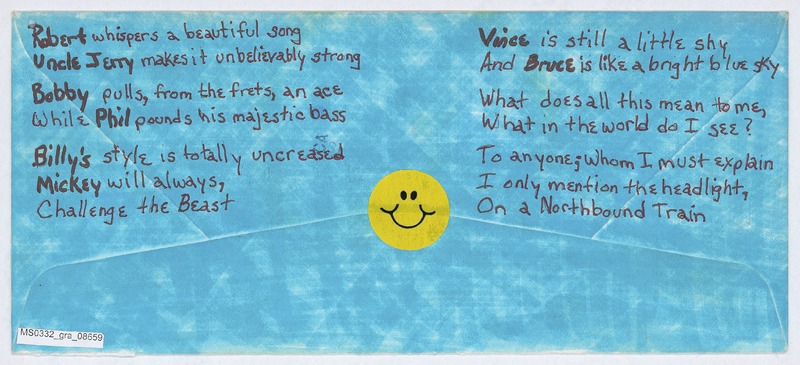 Robert whispers a beautiful song
Uncle Jerry makes it unbelievably strong
Bobby pulls, from the frets, an ace
While Phil pounds his majestic bass
Billy's style is totally uncreased
Mickey will always,
Challenge the Beast
Vince is still a little shy
And Bruce is like a bright blue sky
What does all this mean to me,
What in the world do I see?
To anyone; whom I must explain
I only mention the headlight,
On a Northbound Train
MS0332_gra_08659